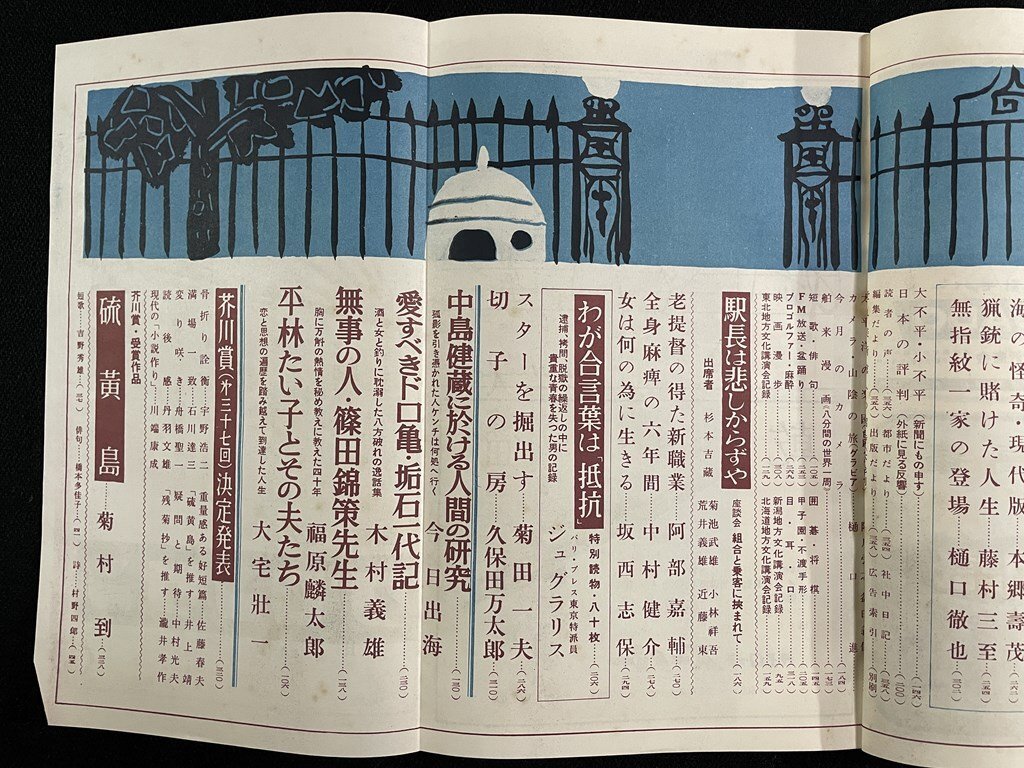 海の怪奇・現代版 本郷壽茂
猟銃に賭けた人生 藤村三至
無指紋一家の登場 樋口徹也
大不平・小不平（新聞にもの申す）
日本の評判（外紙に見る反響）
読者の声
都市だより
社中日記
編集だより
出版だより
広告索引
別刷
今月のカメラ
カメラ山陰の旅（グラビア） 樋口進
舶来漫画（八分間の世界一周）
短歌・俳句
囲碁将棋
FM放送・盆踊り
甲子園・不渡手形
プロゴルファー・麻酔
目・耳・口
映画漫歩
新潟地方文化講演会記録
東北地方文化講演会記録
北海道地方文化講演会記録
駅長は悲しからずや
座談会 組合と乗客に挟まれて
出席者 杉本吉蔵 菊池武雄 小林祥吾
荒井義雄 近藤東
老提督の得た新職業 阿部嘉輔
全身麻痺の六年間 中村健介
女は何の為に生きる 坂西志保
わが合言葉は「抵抗」
特別読物・八十枚
逮捕、拷問、脱獄の繰返しの中に
貴重な青春を失った男の記録
パリ・プレス東京特派員
ジュグラリス
スターを掘出す 菊田一夫
切子の房 久保田万太郎
中島健蔵に於ける人間の研究 今日出海
孤影を引き憑かれた人ケンチは何処へ行く
愛すべきドロ亀・垢石一代記 木村義雄
酒と女と釣りに耽溺した八方破れの逸話集
無事の人・篠田錦策先生 福原麟太郎
胸に万斛の熱情を秘め教えに教えた四十年
平林たい子とその夫たち 大宅壮一
恋と思想の遍歴を踏み越えて到達した人生
芥川賞（第三十七回）決定発表
骨折り詮衡 宇野浩二
重量感ある好短篇 佐藤春夫
満場一致 石川達三
「硫黄島」を推す 井上靖
変り咲き 舟橋聖一
疑問と期待 中村光夫
読後感 丹羽文雄
「残菊抄」を推す 瀧井孝作
現代の「小説作り」 川端康成
芥川賞・受賞作品
硫黄島 菊村到
短歌 吉野秀雄
俳句 橋本多佳子
詩 村野四郎